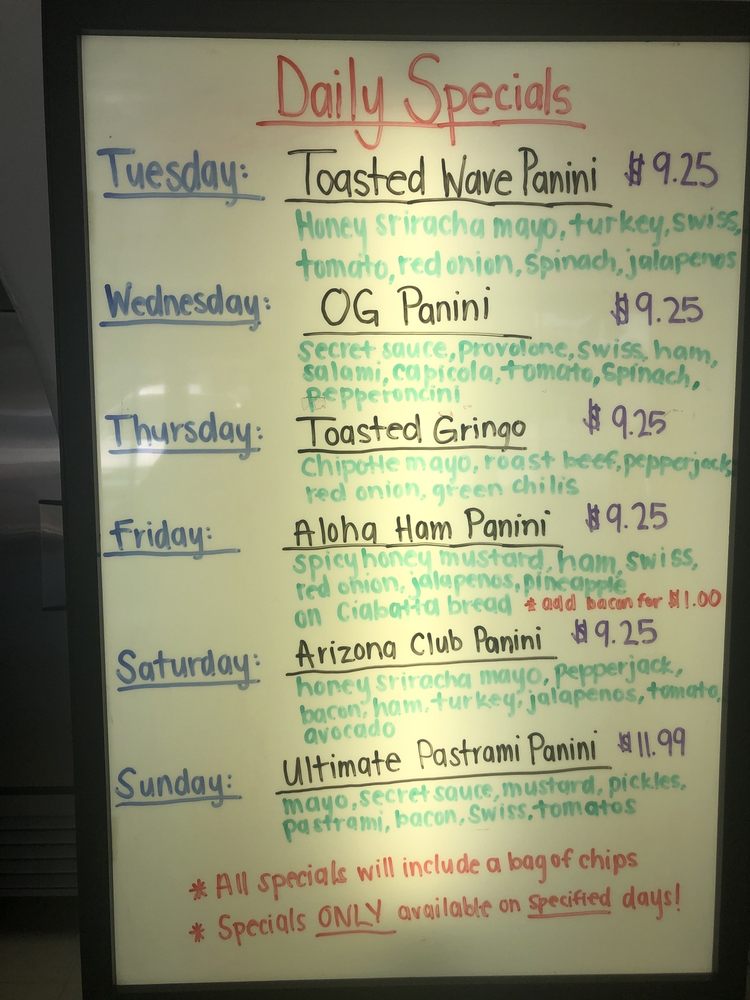 Daily Specials
Tuesday: Toasted Wave Panini $9.25
Honey sriracha mayo, turkey, swiss,
tomato, red onion, spinach, jalapenos
Wednesday: OG Panini $9.25
secret sauce, provolone, swiss, ham,
salami, capicola, tomato, spinach,
pepperoncini
Thursday: Toasted Gringo $9.25
Chipotle mayo, roast beef, pepperjack,
red onion, green chilis
Friday: Aloha Ham Panini $9.25
spicy honey mustard, ham, swiss,
red onion, jalapenos, pineapple
on Ciabatta bread * add bacon for $1.00
Saturday: Arizona Club Panini $9.25
honey sriracha mayo, pepperjack,
bacon, ham, turkey, jalapenos, tomato,
avocado
Sunday: Ultimate Pastrami Panini $11.99
mayo, secret sauce, mustard, pickles,
pastrami, bacon, Swiss, tomatos
* All specials will include a bag of chips
* Specials ONLY available on specified days!